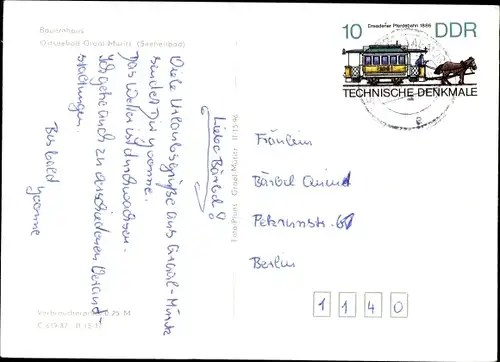 Bauernhaus
Ostseebad Graal-Müritz (Seeheilbad)
Liebe Bärbel!
Viele Urlaubsgrüße aus Graal-Müritz
sendet Dir Yvonne.
Das Wetter ist durchwachsen.
Ich gehe auch zu verschiedenen Veranstaltungen.
Bis bald
Yvonne
Verbraucherpreis 0,25 M
Foto-Pruns Graal-Müritz
10 Dresdener Pferdebahn 1886 DDR
TECHNISCHE DENKMALE
Fräulein
Bärbel
Berlin
1140